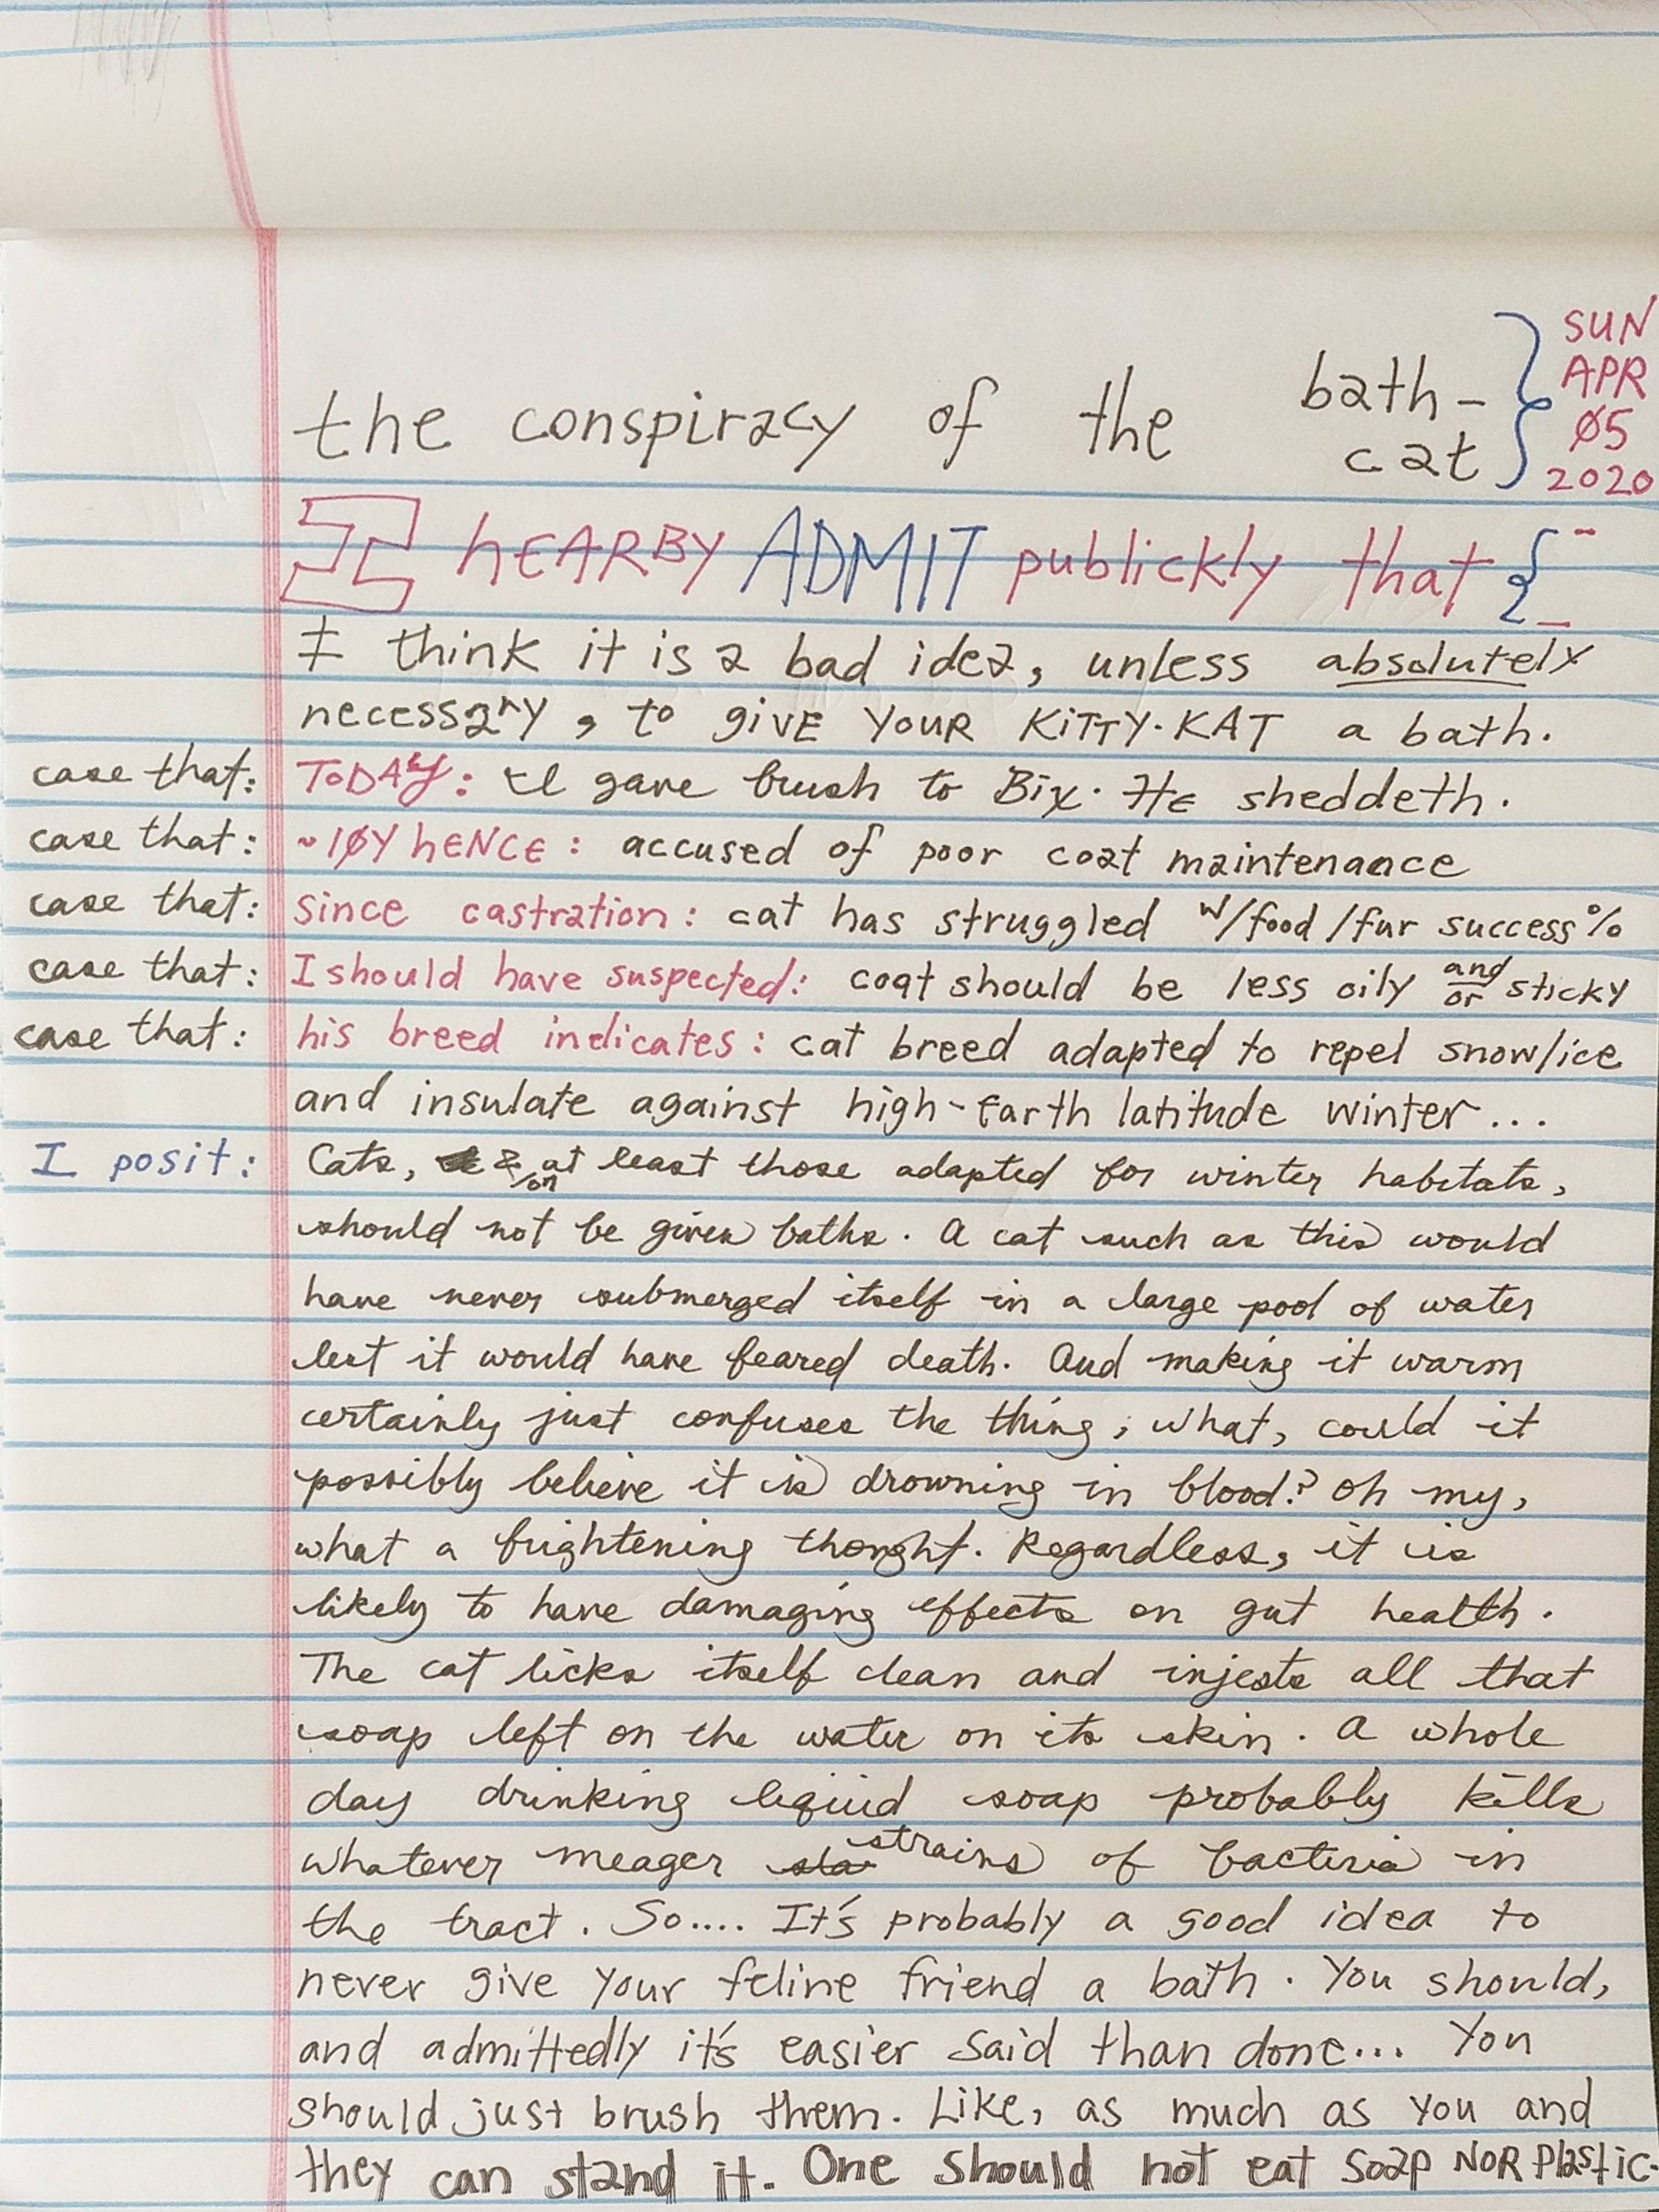 the conspiracy of the bath-
cat
SUN
APR
Ø5
2020
I hEARBY ADMIT publickly that {
I think it is a bad idea, unless absolutely
necessary, to giVE YOUR KiTTY·KAT a bath.
case that: TODAY: I gave brush to Bix. He sheddeth.
case that: ~1ØY hENCE: accused of poor coat maintenance
case that: since castration: cat has struggled w/food/fur success%
case that: I should have suspected: coat should be less oily and/or sticky
case that: his breed indicates: cat breed adapted to repel snow/ice
and insulate against high-Earth latitude winter...
I posit: Cats, & /or at least those adapted for winter habitats,
should not be given baths. A cat such as this would
have never submerged itself in a large pool of water
lest it would have feared death. And making it warm
certainly just confuses the thing; what, could it
possibly believe it is drowning in blood? Oh my,
what a frightening thought. Regardless, it is
likely to have damaging effects on gut health.
The cat licks itself clean and injests all that
soap left on the water on its skin. A whole
day drinking liquid soap probably kills
whatever meager strains of bacteria in
the tract. So.... It's probably a good idea to
never give your feline friend a bath. You should,
and admittedly it's easier said than done... You
should just brush them. Like, as much as you and
they can stand it. One should not eat soap NOR Plastic.